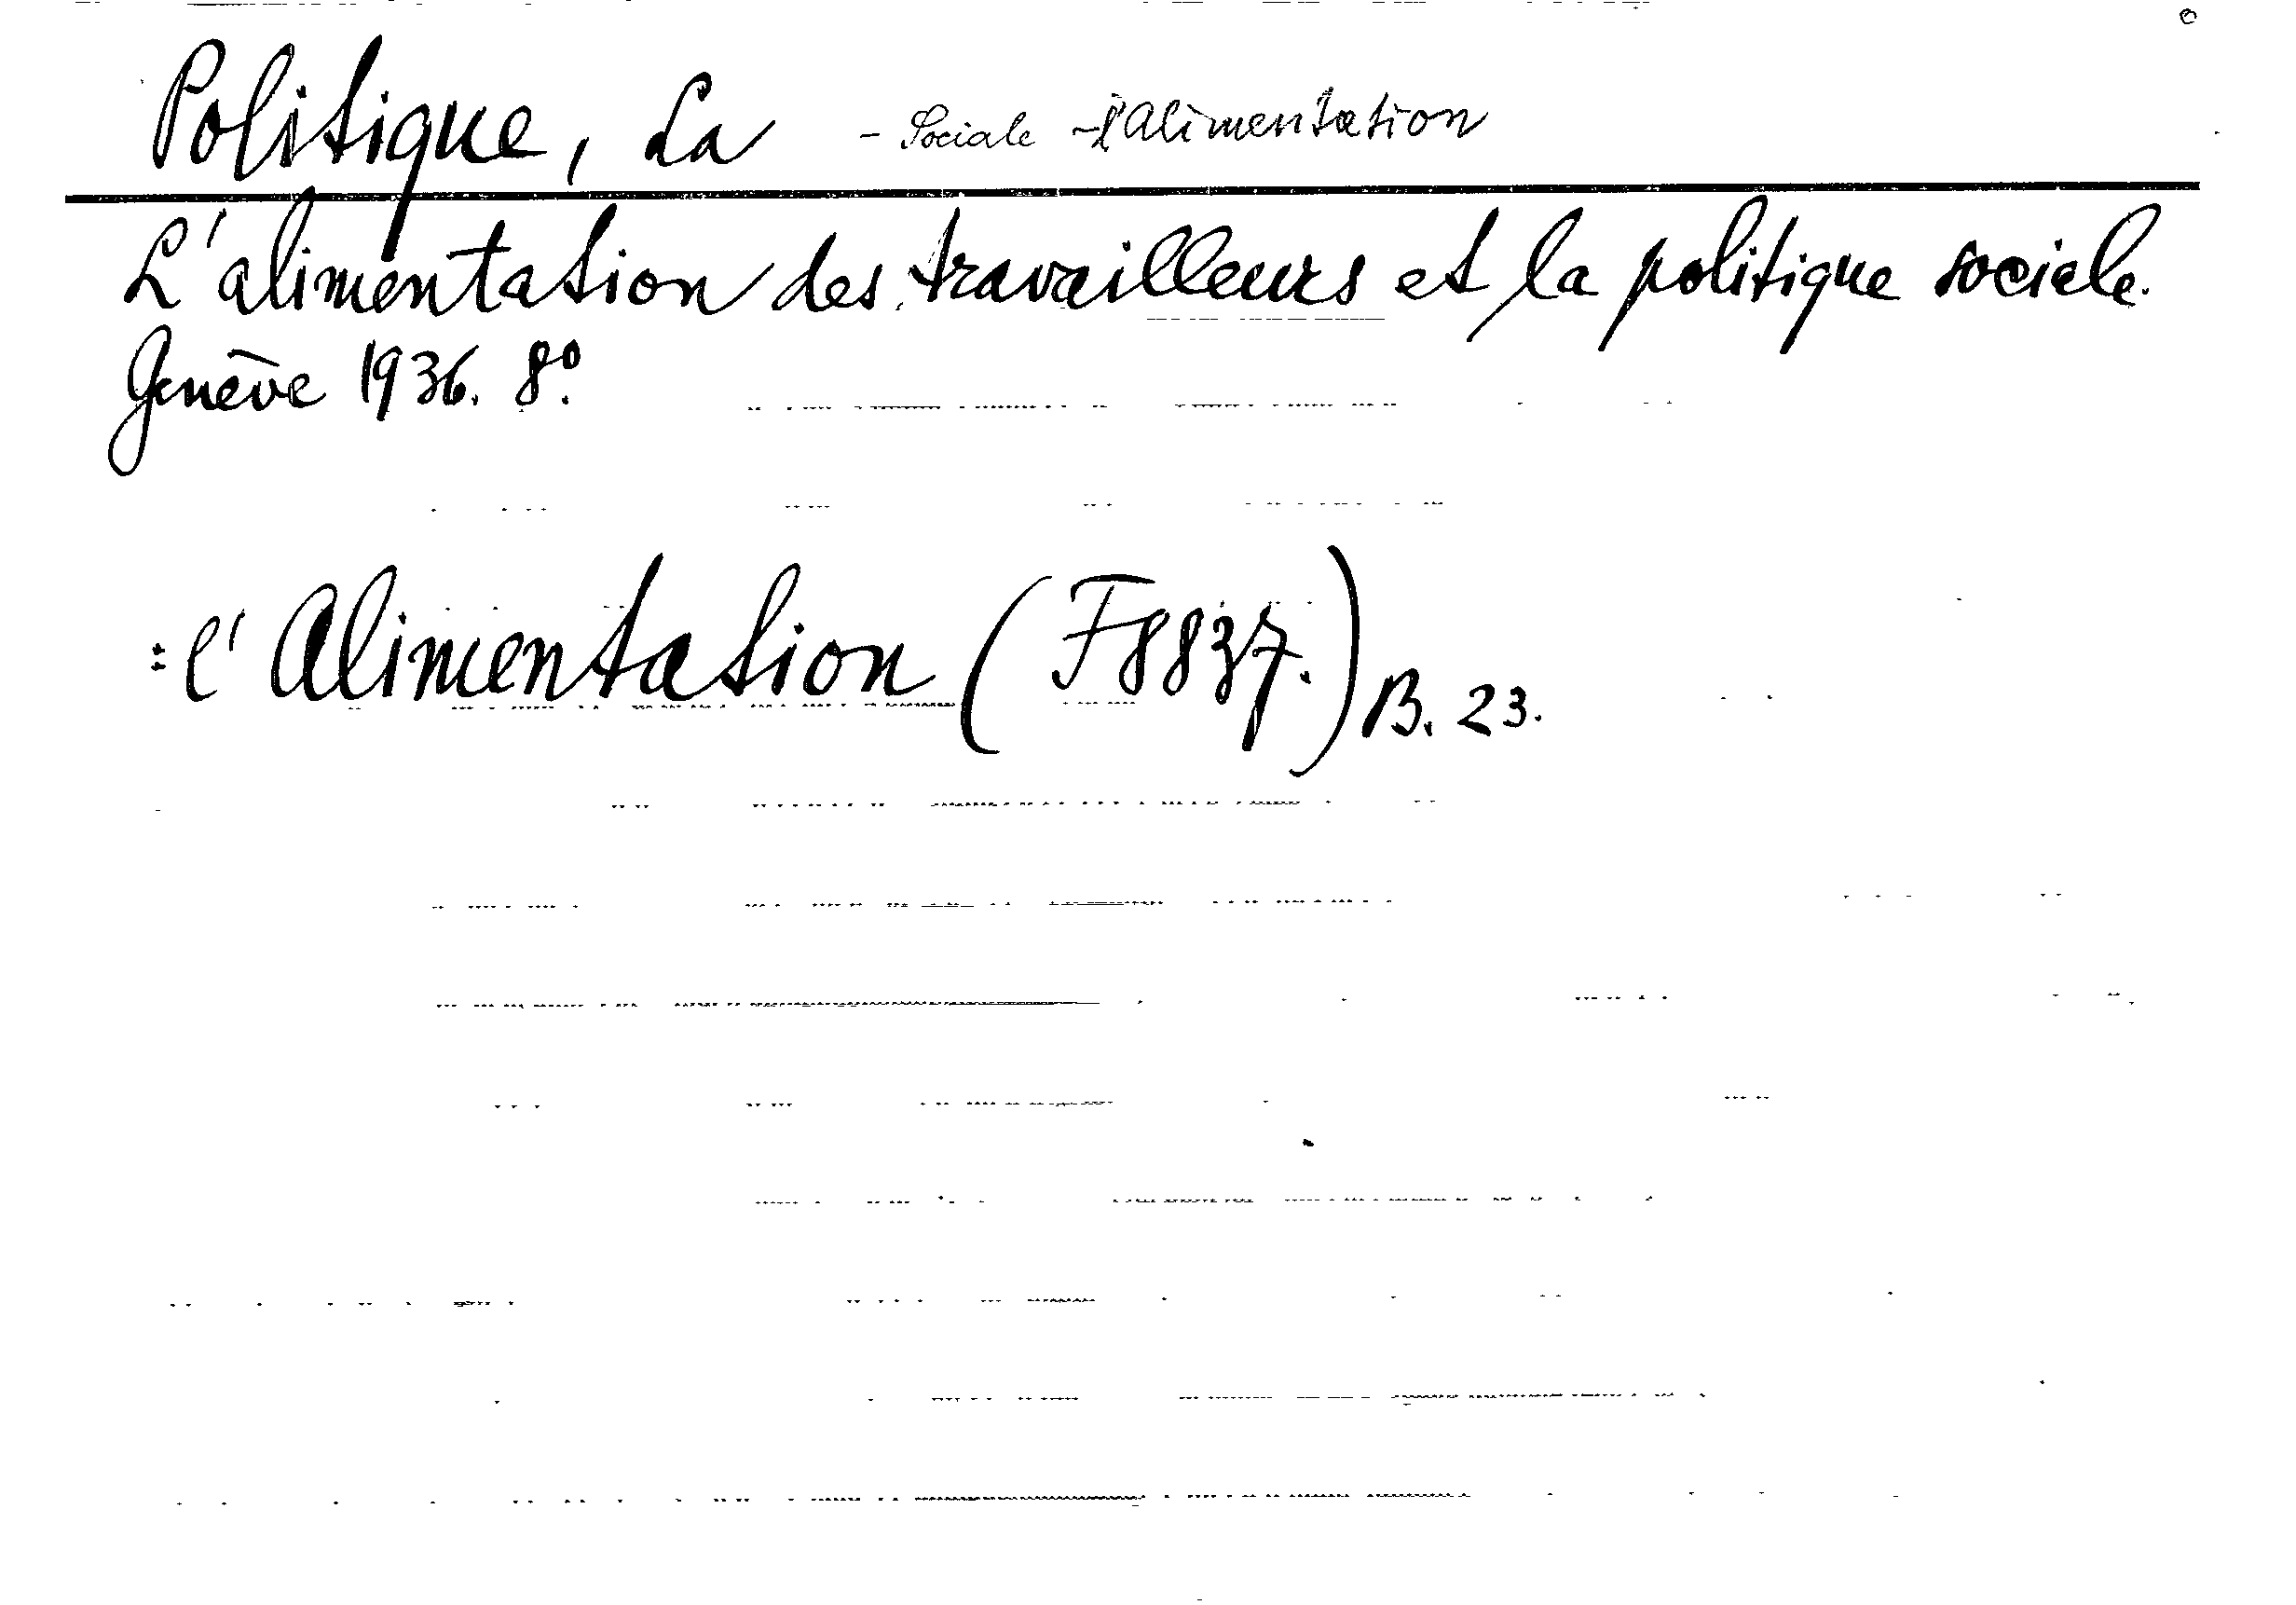 Politique, La - Sociale - l'Alimentation
L'alimentation des travailleurs et la politique sociale.
Genève 1936. 8º.
: l'Alimentation (F8837.) B. 23.